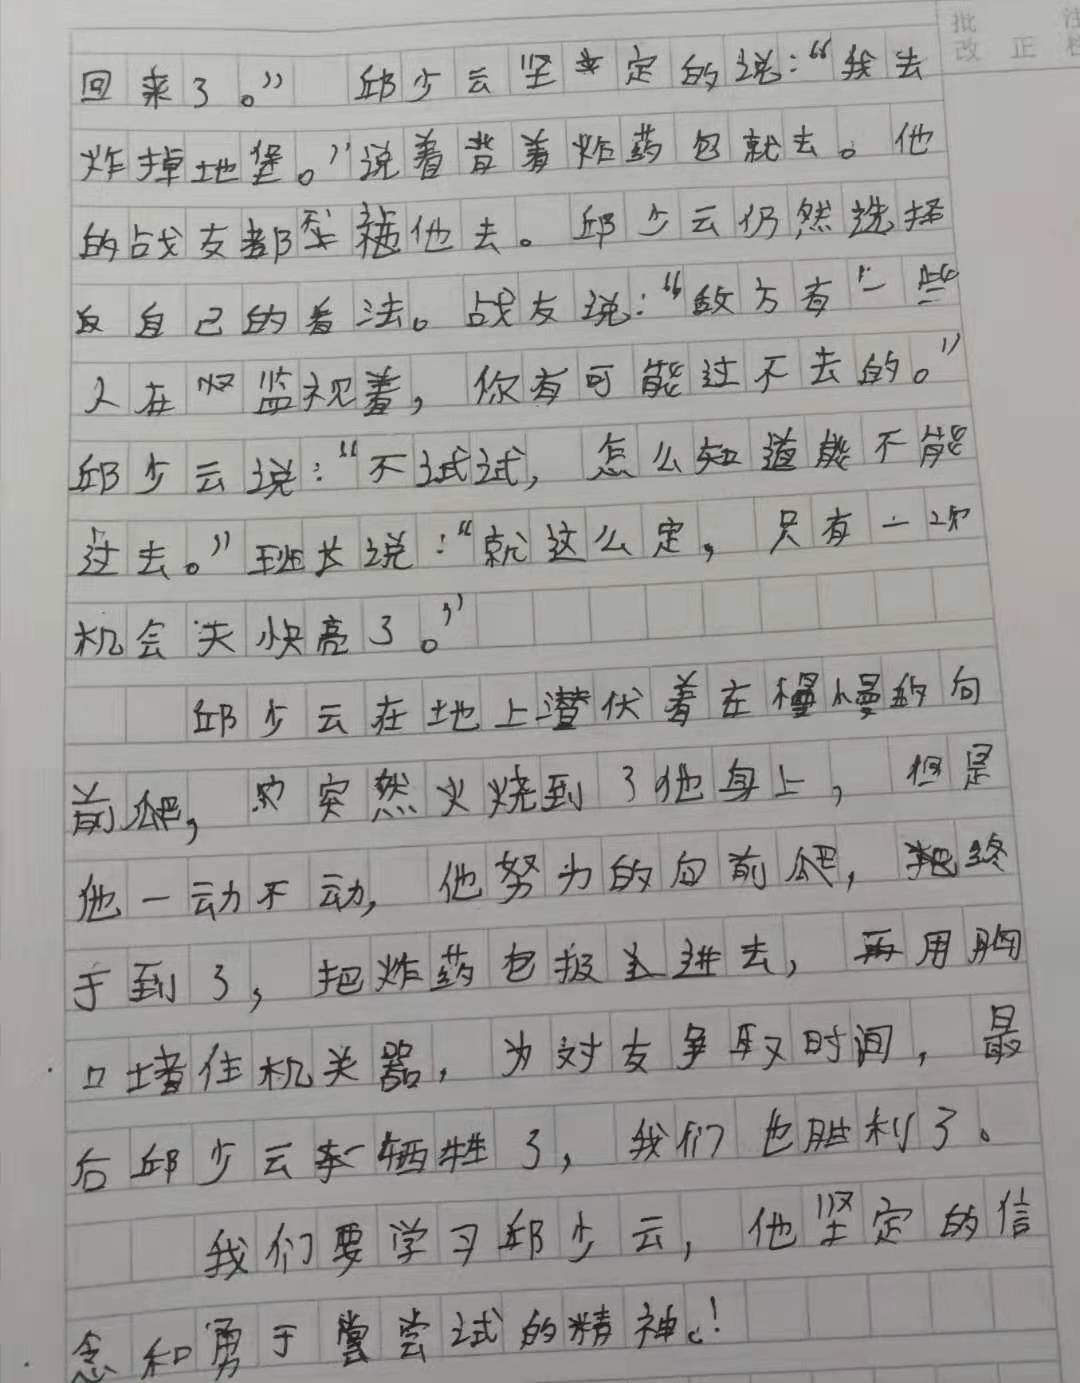 批 注
改 正 栏
回来了。”邱少云坚定的说：“我去
炸掉地堡。”说着背着炸药包就去。他
的战友都不让他去。邱少云仍然选择
自己的看法。战友说：“敌方有一些
人在监视着，你有可能过不去的。”
邱少云说：“不试试，怎么知道能不能
过去。”班长说：“就这么定，只有一次
机会天快亮了。”
邱少云在地上潜伏着在慢慢的向
前爬，突然火烧到了他身上，但是
他一动不动，他努力的向前爬，终
于到了，把炸药包扔进去，再用胸
口堵住机关器，为对友争取时间，最
后邱少云牺牲了，我们也胜利了。
我们要学习邱少云，他坚定的信
念和勇于尝试的精神！